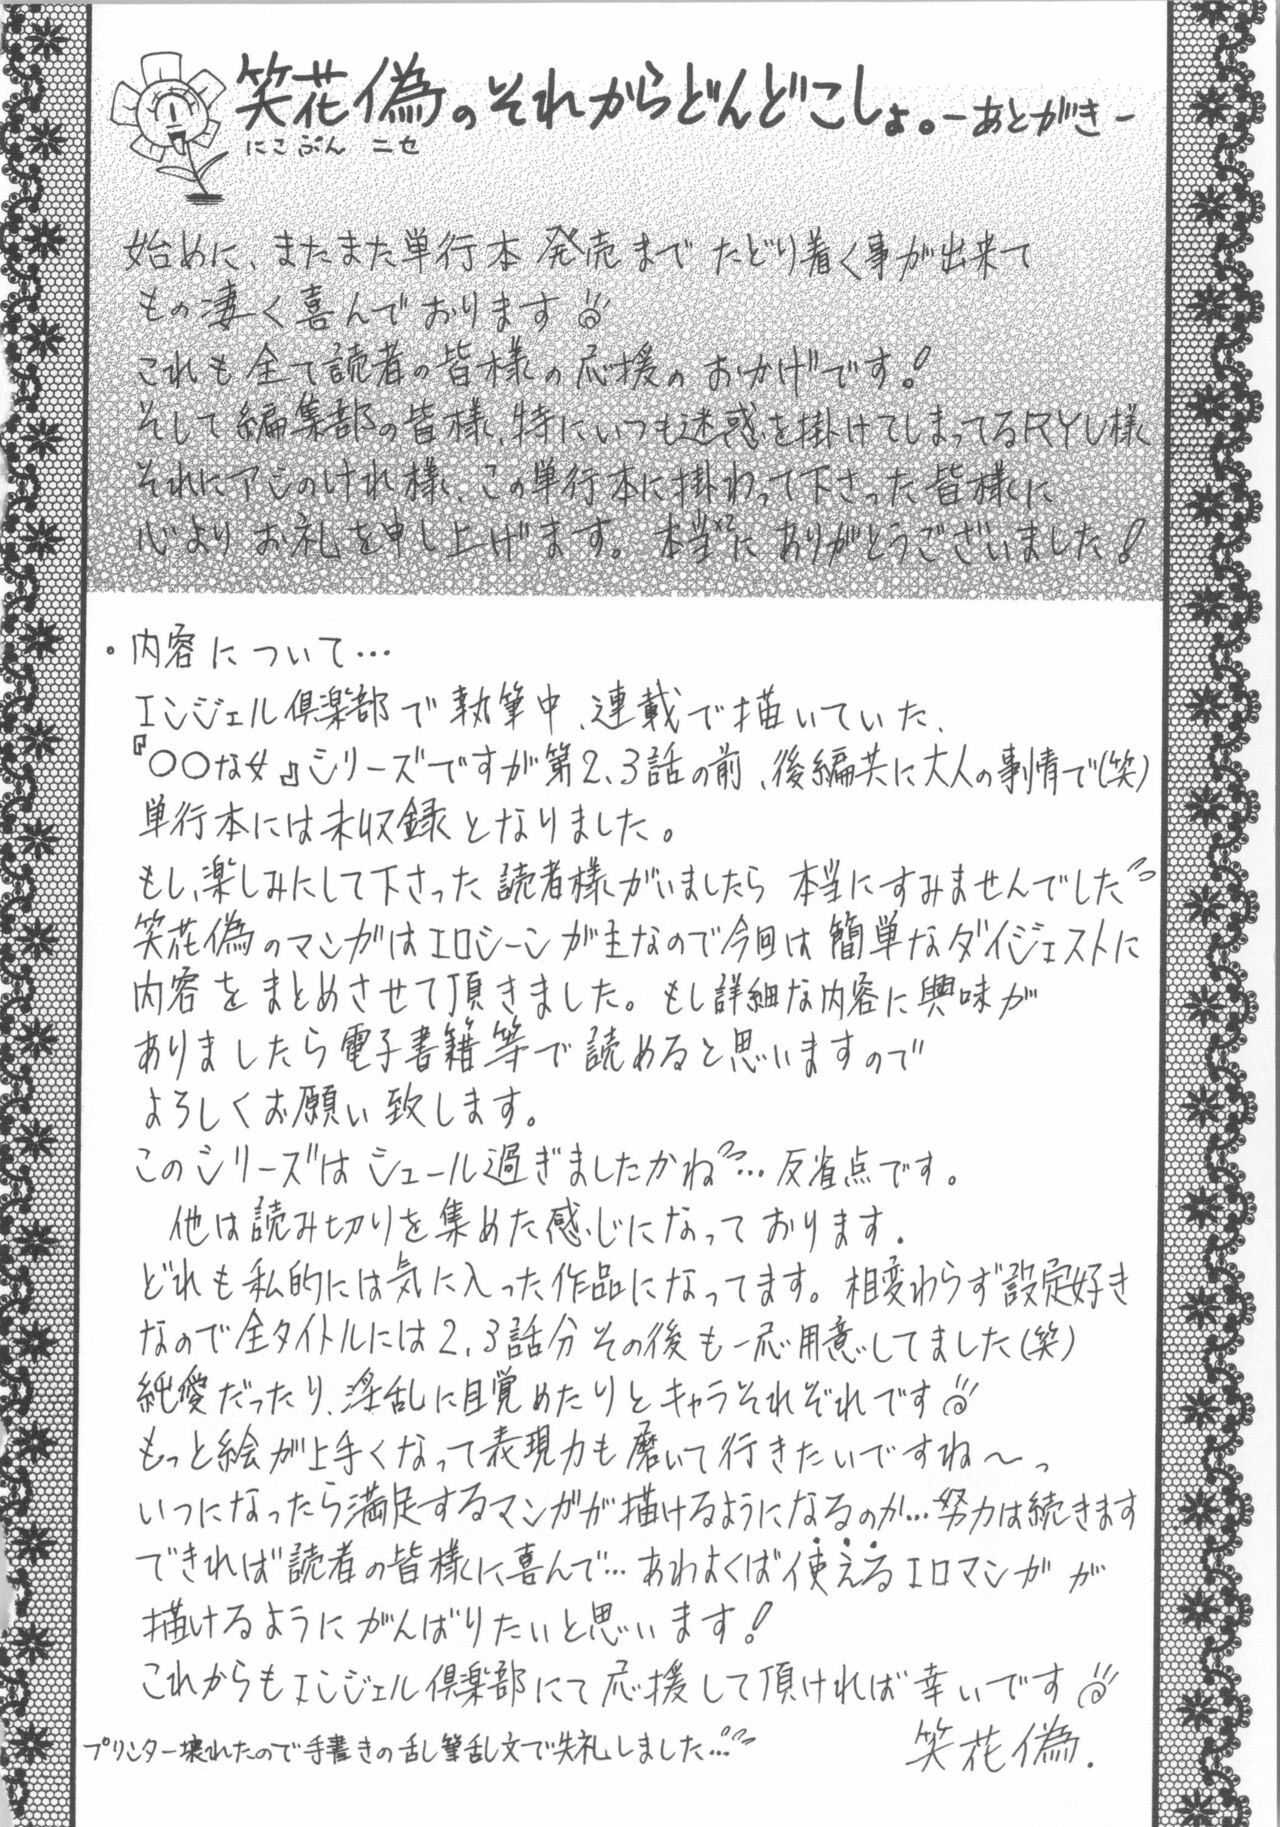 笑花偽のそれからどんどこしょ。-あとがき-
にこぷん ニセ
始めに、またまた単行本発売までたどり着く事が出来て
もの凄く喜んでおります
これも全て読者の皆様の応援のおかげです!
そして編集部の皆様、特にいつも迷惑を掛けてしまってるRYU様
それにアシのけれ様、この単行本に掛わって下さった皆様に
心よりお礼を申し上げます。本当にありがとうございました!
・内容について…
エンジェル倶楽部で執筆中、連載で描いていた、
『○○な女』シリーズですが第2、3話の前、後編共に大人の事情で(笑)
単行本には未収録となりました。
もし、楽しみにして下さった読者様がいましたら本当にすみませんでした
笑花偽のマンガはエロシーンが主なので今回は簡単なダイジェストに
内容をまとめさせて頂きました。もし詳細な内容に興味が
ありましたら電子書籍等で読めると思いますので
よろしくお願い致します。
このシリーズはシュール過ぎましたかね…反省点です。
他は読み切りを集めた感じになっております.
どれも私的には気に入った作品になってます。相変わらず設定好き
なので全タイトルには2、3話分その後も一応用意してました(笑)
純愛だったり、淫乱に目覚めたりとキャラそれぞれです
もっと絵が上手くなって表現力も磨いて行きたいですね〜っ
いつになったら満足するマンガが描けるようになるのか…努力は続きます
できれば読者の皆様に喜んで…あわよくば使えるエロマンガが
描けるようにがんばりたいと思います!
これからもエンジェル倶楽部にて応援して頂ければ幸いです
笑花偽.
プリンター壊れたので手書きの乱筆乱文で失礼しました…